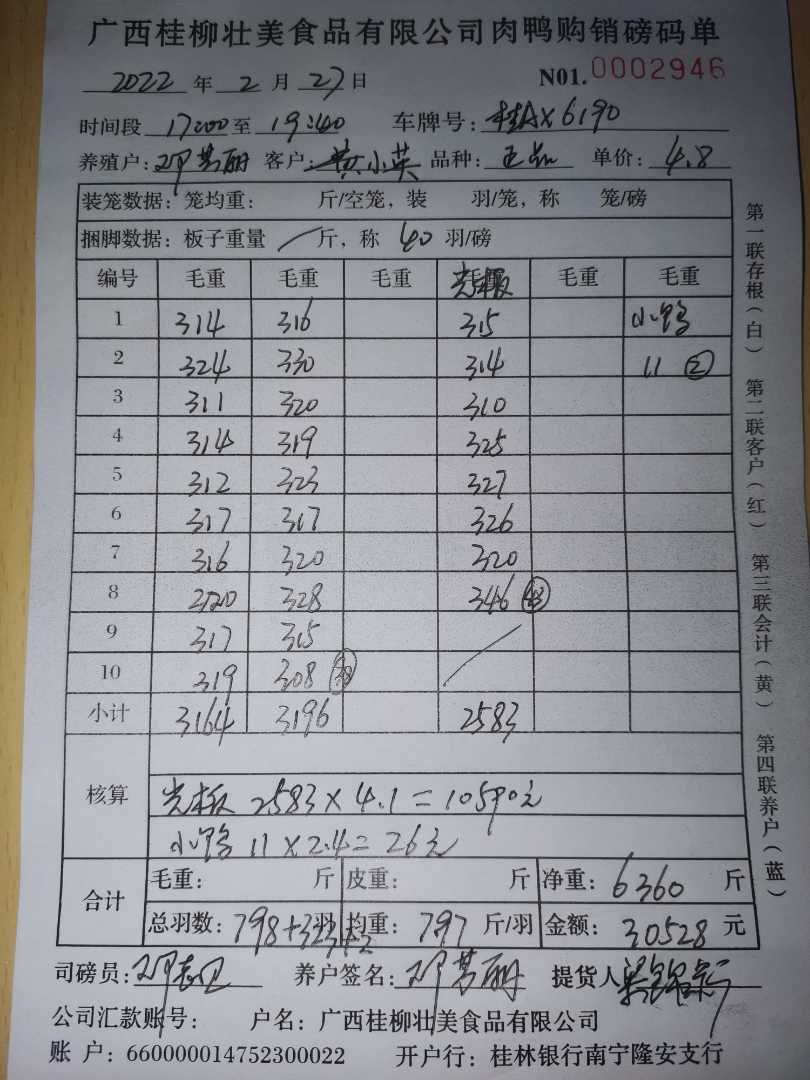 广西桂柳壮美食品有限公司肉鸭购销磅码单
2022 年 2 月 27 日 N01. 0002946
时间段 17:00 至 19:40 车牌号: 桂AX6190
养殖户: 邓芳丽 客户: 黄小英 品种: 单价: 4.8
装笼数据: 笼均重: 斤/空笼, 装 羽/笼, 称 笼/磅
捆脚数据: 板子重量 / 斤, 称 40 羽/磅
编号 毛重 毛重 毛重 光板 毛重 毛重
1 314 316 315 小鸭
2 324 330 314 11 ②
3 311 320 310
4 314 319 325
5 312 323 327
6 317 317 326
7 316 320 320
8 320 328 346
9 317 315
10 319 308 38
小计 3164 3196 2583
核算
光板 2583×4.1=10590元
小鸭 11×2.4=26元
合计
毛重: 斤 皮重: 斤 净重: 6360 斤
总羽数: 798+ 羽 均重: 797 斤/羽 金额: 30528 元
司磅员: 养户签名: 邓芳丽 提货人
公司汇款账号: 户名: 广西桂柳壮美食品有限公司
账 户: 660000014752300022 开户行: 桂林银行南宁隆安支行
第一联存根(白) 第二联客户(红) 第三联会计(黄) 第四联养户(蓝)